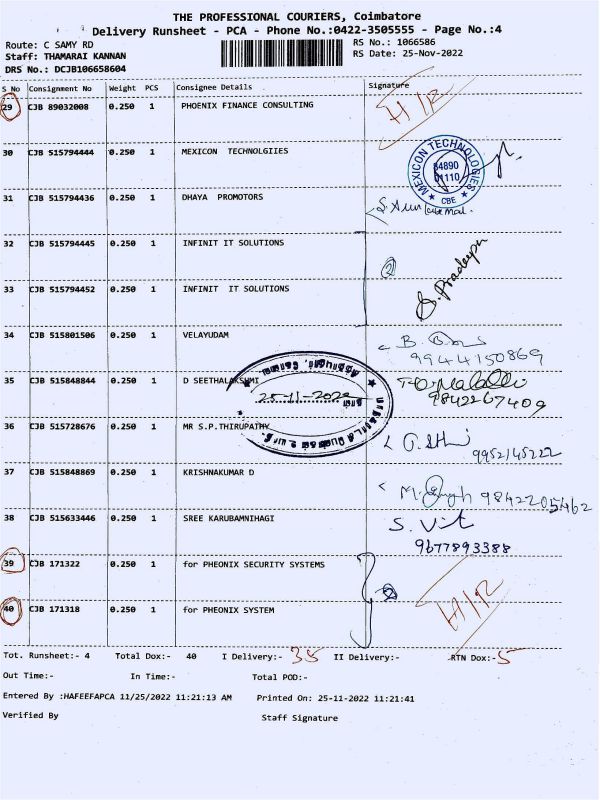 THE PROFESSIONAL COURIERS, Coimbatore
Delivery Runsheet - PCA - Phone No.:0422-3505555 - Page No.:4
Route: C SAMY RD
RS No.: 1066586
Staff: THAMARAI KANNAN
RS Date: 25-Nov-2022
DRS No.: DCJB106658604
S No Consignment No Weight PCS Consignee Details Signature
29 CJB 89032008 0.250 1 PHOENIX FINANCE CONSULTING
30 CJB 515794444 0.250 1 MEXICON TECHNOLGIIES
MEXICON TECHNOLOGIES
94890
01110
CBE
31 CJB 515794436 0.250 1 DHAYA PROMOTORS
32 CJB 515794445 0.250 1 INFINIT IT SOLUTIONS
2
33 CJB 515794452 0.250 1 INFINIT IT SOLUTIONS
S. Pradeepa
34 CJB 515801506 0.250 1 VELAYUDAM
9944150869
35 CJB 515848844 0.250 1 D SEETHALAKSHMI
25-11-2022
9842267409
36 CJB 515728676 0.250 1 MR S.P.THIRUPATHY
9952145222
37 CJB 515848869 0.250 1 KRISHNAKUMAR D
9842205462
38 CJB 515633446 0.250 1 SREE KARUBAMNIHAGI
9677893388
39 CJB 171322 0.250 1 for PHEONIX SECURITY SYSTEMS
2
40 CJB 171318 0.250 1 for PHEONIX SYSTEM
Tot. Runsheet:- 4 Total Dox:- 40 I Delivery:- 35 II Delivery:- RTN Dox:- 5
Out Time:- In Time:- Total POD:-
Entered By :HAFEEFAPCA 11/25/2022 11:21:13 AM Printed On: 25-11-2022 11:21:41
Verified By Staff Signature